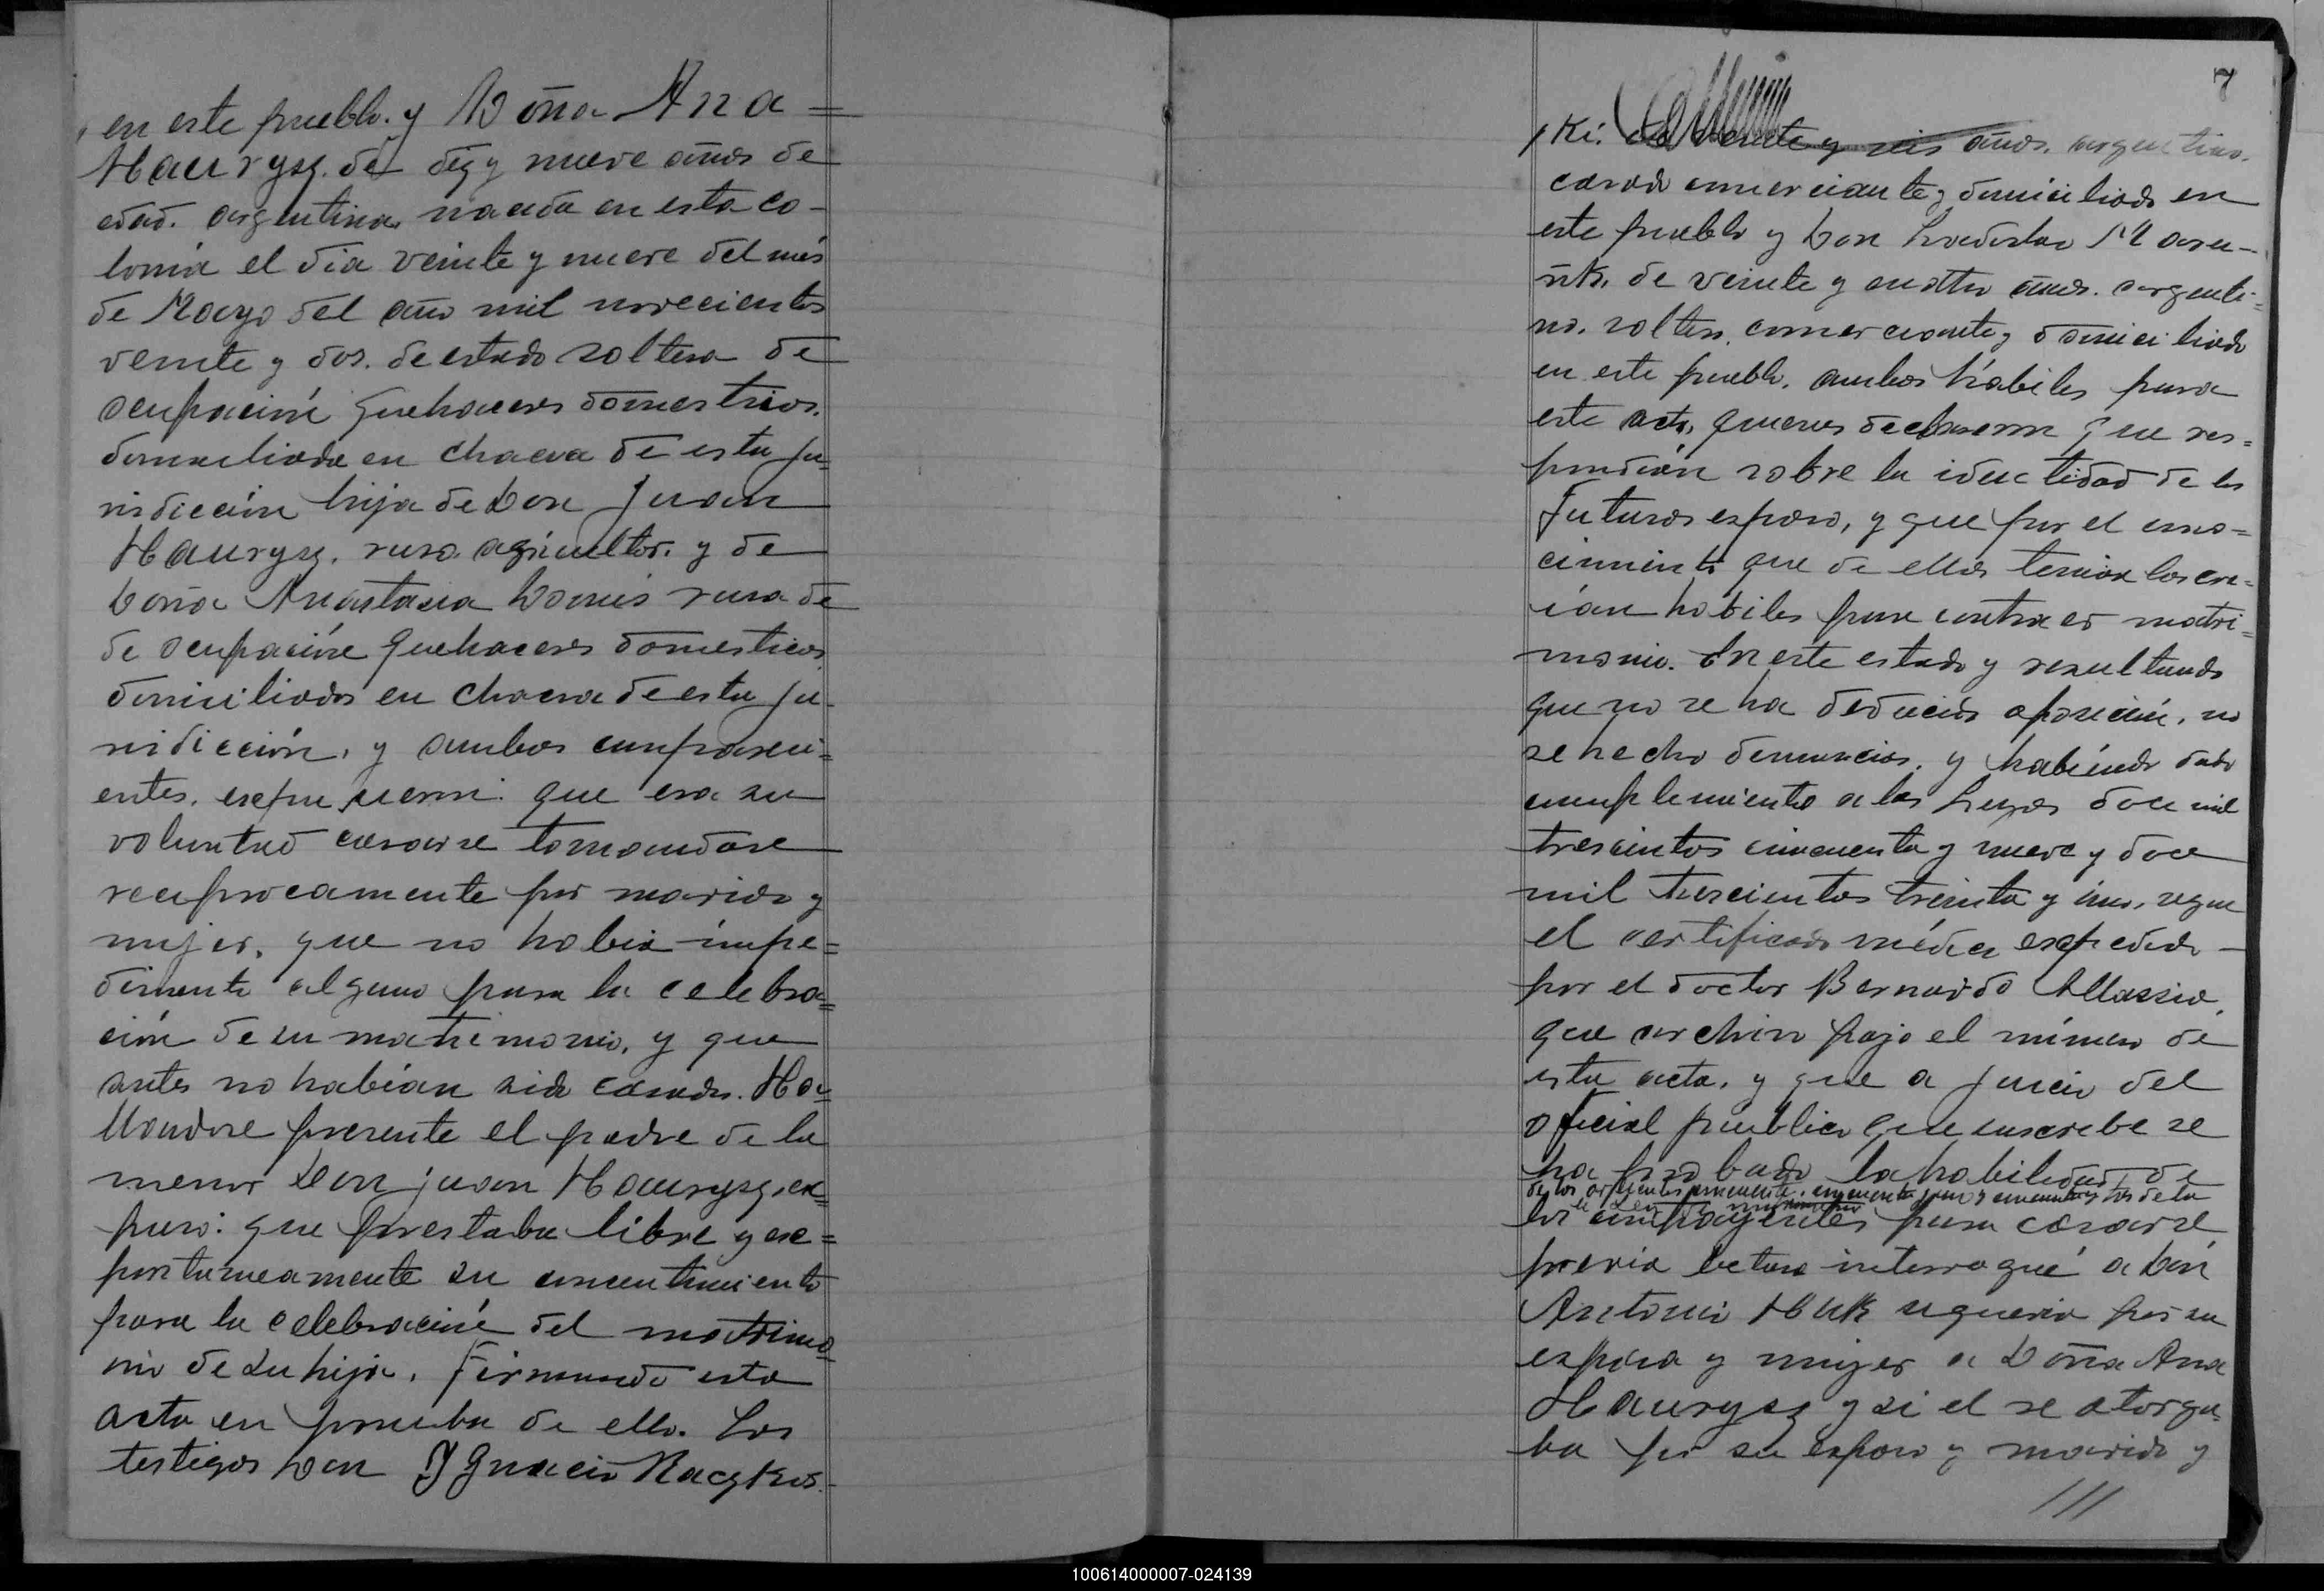 en este pueblo. y Doña Ana =
Haurysz. de diez y nueve años de
edad. argentina. nacida en esta co-
lonia el dia veinte y nueve del més
de Mayo del año mil novecientos
veinte y dos. de estado soltera de
ocupación quehaceres domesticos.
domiciliada en chacra de esta ju-
risdicción hija de Don Juan
Haurysz. ruso. agricultor. y de
Doña Anastacia rusa de
de ocupación quehaceres domesticos
domiciliados en chacra de esta ju-
risdicción, y ambos compareci-
entes. expusieron: que era su
voluntad casarse tomandose
reciprocamente por marido y
mujer, que no habia impe=
dimento alguno para la celebra=
ción de su matrimonio, y que
antes no habían sido casados. Ha-
llandose presente el padre de la
menor Don Juan Haurysz, ex=
puso: que prestaba libre y es=
pontuneamente su concentimiento
para la celebración del matrimo-
nio de su hija. Firmando esta
acta en prueba de ello. Los
testigos Don Ygnacio Raczkos.
7
ki. de veinte y seis años. argentino.
casado comerciante y domiciliado en
este pueblo y Don Ladislao
de veinte y cuatro años. argenti=
no. soltero. comerciante y domiciliado
en este pueblo. ambos hábiles para
este acto, quienes declararon que res=
pondían sobre la identidad de los
Futuros esposos, y que por el cono=
cimiento que de ellos tenian los cre=
ían hábiles para contraer matri=
monio. En este estado y resultando
que no se ha deducido oposición, no
se hecho denuncias, y habiendo dado
cumplimiento a las Leyes doce mil
trescientos cincuenta y nueve y doce
mil trescientos treinta y uno, segun
el certificado médico expedido -
por el doctor Bernardo Allassia,
que archivo bajo el número de
esta acta, y que a juicio del
oficial publico que suscribe se
ha probado la habilidad de
de los articulos cincuenta y uno y cincuenta y tres de la
ley de matrimonio
los contrayentes para casarse
previa lectura interrogué a Don
Antonio Huk si queria por su
esposa y mujer a Doña Ana
Haurysz y si el se otorga-
ba por su esposo y marido y
///
100614000007-024139